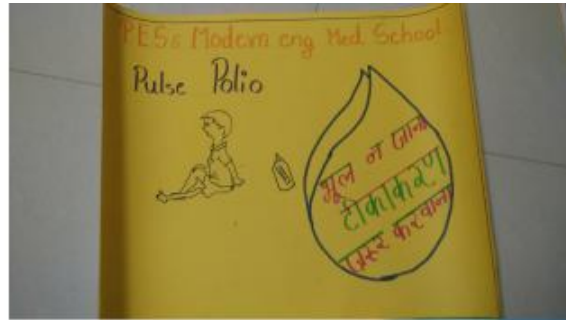 PESs Modern eng Med. School
Pulse Polio
भूल न जाना
टीकाकरण
जरूर करवाना